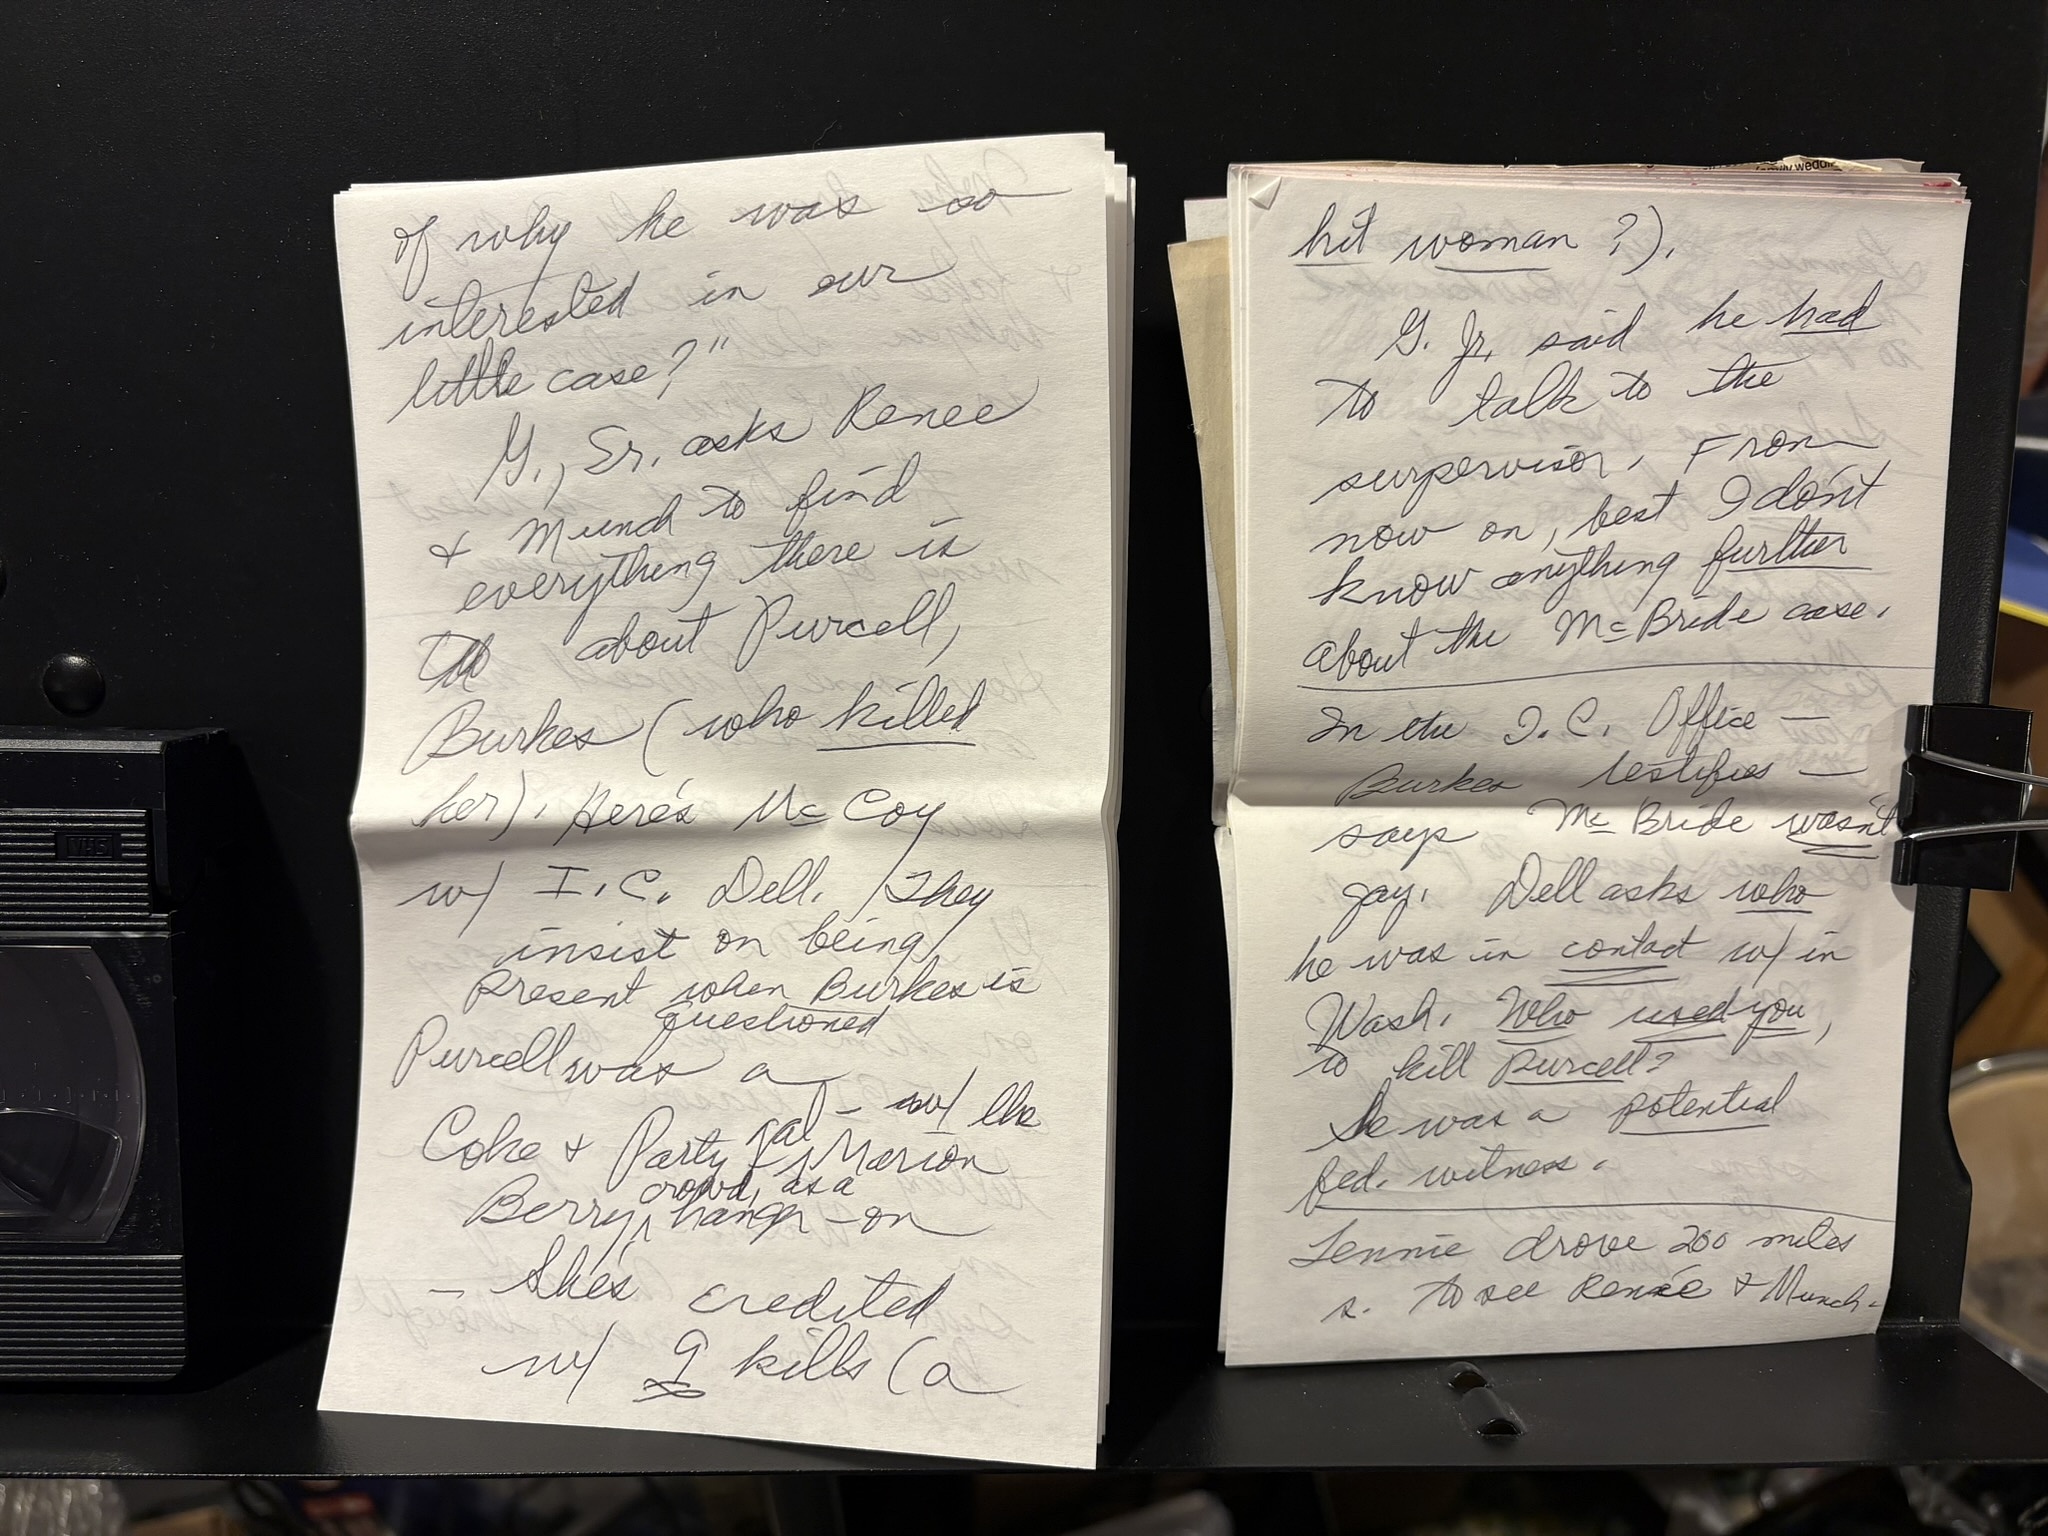 of why he was so
interested in our
little case?"
G., Sr. asks Renee
& Munch to find
everything there is
about Purcell,
Burkes (who killed
her). Here's McCoy
w/ I.C. Dell. They
insist on being
present when Burkes is
questioned
Purcell was a
Coke & Party gal - w/ the
Marion
Berry crowd, as a
hanger-on
- She's credited
w/ 9 kills (a
VHS
family weddi
hit woman?).
G. Jr. said he had
to talk to the
surpervisor. From
now on, best I don't
know anything further
about the McBride case.
In the I.C. Office —
Burkes testifies —
says McBride wasn't
gay. Dell asks who
he was in contact w/ in
Wash. Who used you,
to kill Purcell?
She was a potential
fed. witness.
Lennie drove 200 miles
s. to see Renée & Munch.